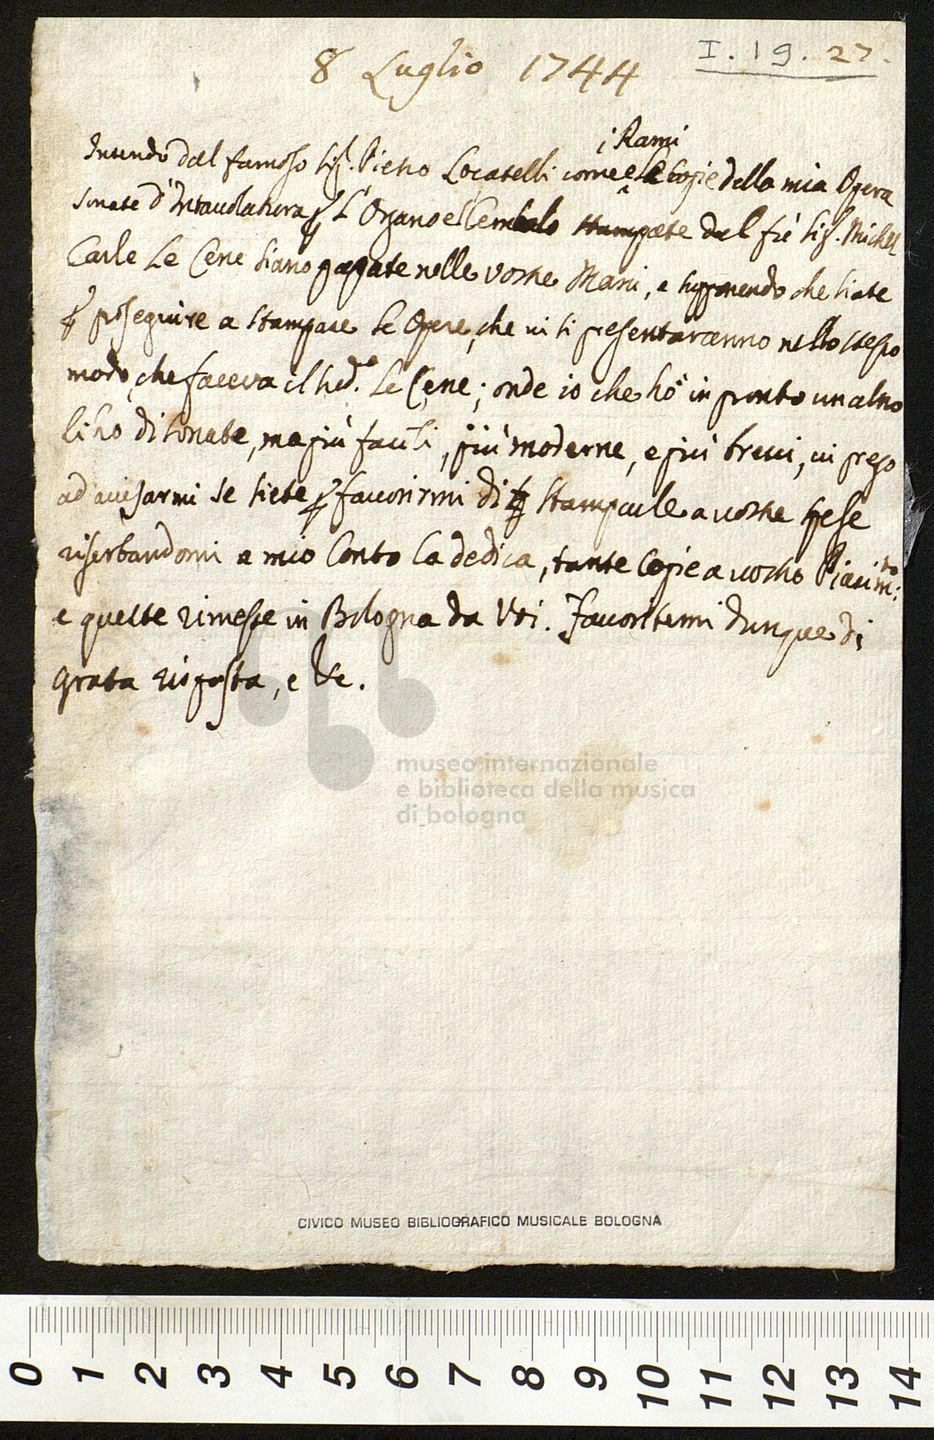 I. 19. 27.
8 Luglio 1744
i Rami
Intendo dal famoso Sig.r Pietro Locatelli come e le Copie della mia Opera
Sonate d'Intavolatura p L'Organo e'l Cembalo stampate dal fù Sig.r Michel
Carle Le Cene siano passate nelle vostre Mani, e supponendo che siate
p proseguire a stampare le Opere, che vi si presentaranno nello stesso
modo, che faceva il sud.o Le Cene; onde io che hò in pronto un altro
libro di sonate, ma più facili, più moderne, e più brevi, vi prego
ad avisarmi se siete p favorirmi di stamparle a vostre spese
riserbandomi a mio Conto la dedica, tante Copie a vostro Piacim.to:
e queste rimesse in Bologna da Voi. Favoritemi dunque di
grata risposta, e
museo internazionale
e biblioteca della musica
di bologna
CIVICO MUSEO BIBLIOGRAFICO MUSICALE BOLOGNA
0 1 2 3 4 5 6 7 8 9 10 11 12 13 14